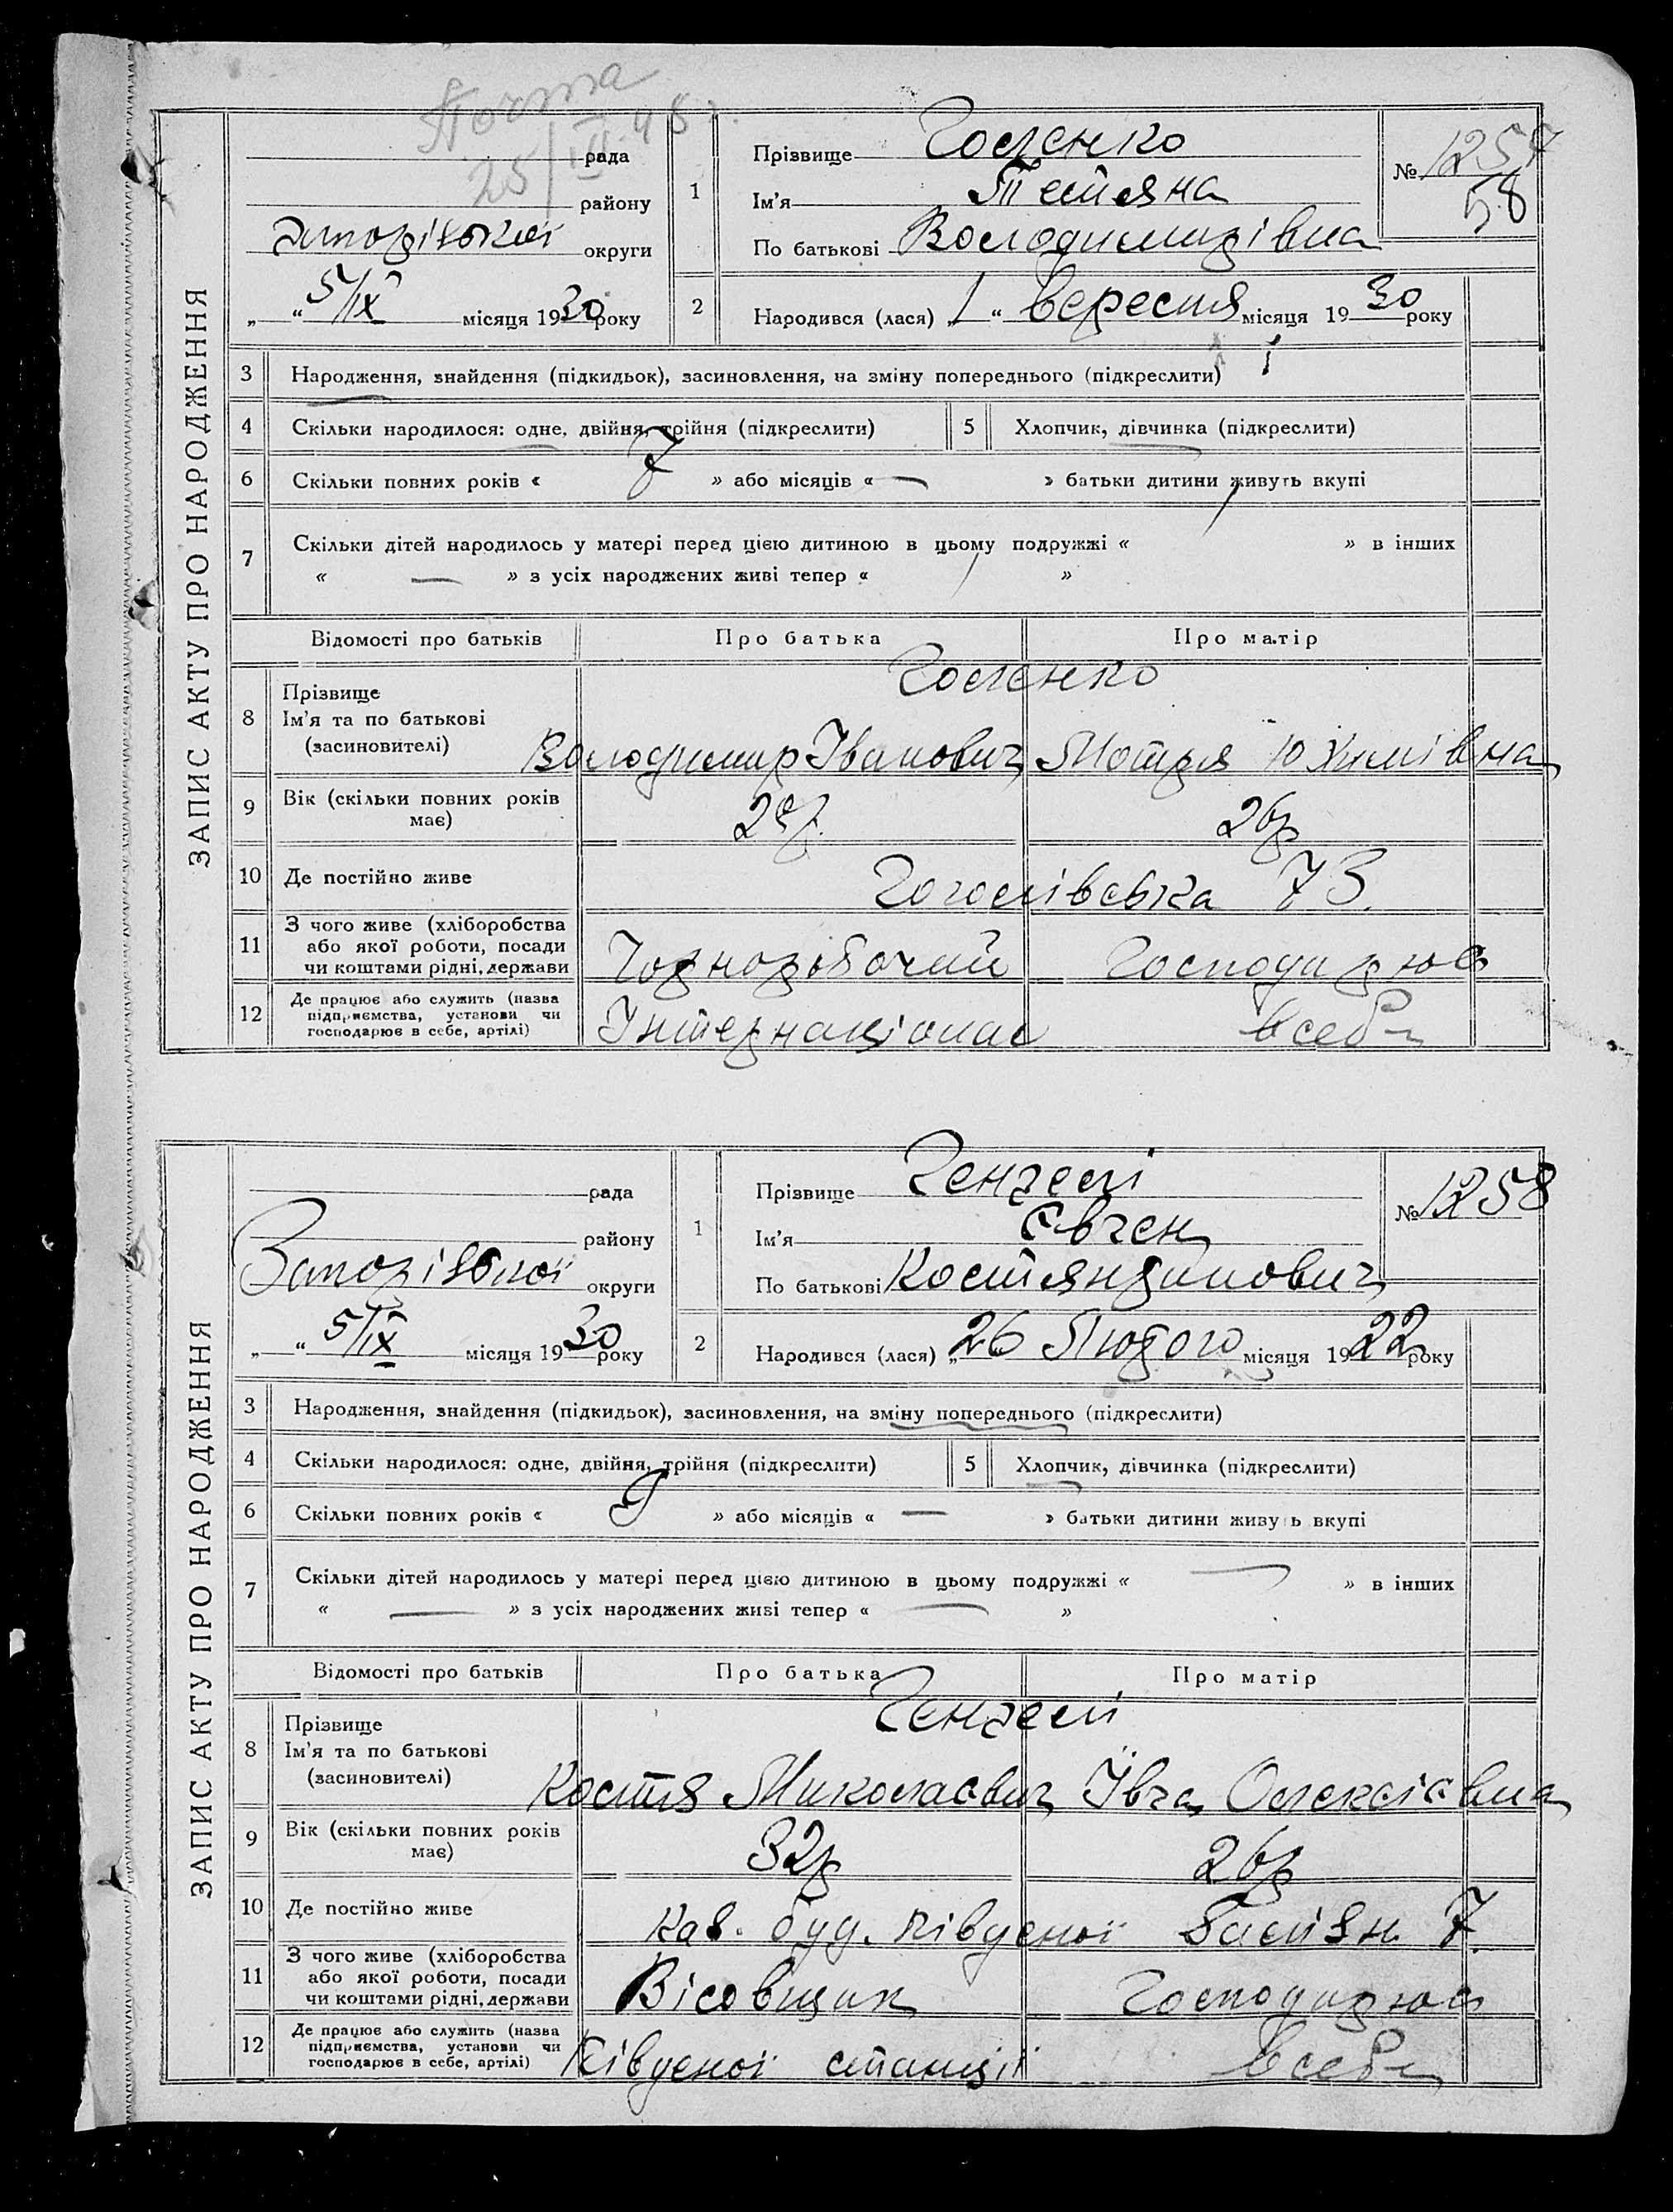 25/III 48 г.
ЗАПИС АКТУ ПРО НАРОДЖЕННЯ
рада
району
Запорізької округи
„ “ 5/IX місяця 1930 року
1 Прізвище Голенко
Ім’я Тетяна
По батькові Володимирівна
№ 1257
58
2 Народився (лася) „1“ вересня місяця 1930 року
3 Народження, знайдення (підкидьок), засиновлення, на зміну попереднього (підкреслити)
4 Скільки народилося: одне, двійня, трійня (підкреслити) 5 Хлопчик, дівчинка (підкреслити)
6 Скільки повних років « 7 » або місяців « — » батьки дитини живуть вкупі
7 Скільки дітей народилось у матері перед цією дитиною в цьому подружжі « 1 » в інших
« — » з усіх народжених живі тепер « 1 »
Відомості про батьків Про батька Про матір
8 Прізвище
Ім’я та по батькові
(засиновителі)
Голенко
Володимир Іванович Мотря Юхимівна
9 Вік (скільки повних років має)
26р
10 Де постійно живе Гоголівська 73.
11 З чого живе (хліборобства або якої роботи, посади чи коштами рідні, держави
Чорноробочий Господарює
12 Де працює або служить (назва підприємства, установи чи господарює в себе, артілі)
Інтернаціонал в себе
ЗАПИС АКТУ ПРО НАРОДЖЕННЯ
рада
району
Запорізької округи
„ “ 5/IX місяця 1930 року
1 Прізвище
Ім’я Євген
По батькові Костянтинович
№ 1258
2 Народився (лася) „26 Лютого місяця 1922 року
3 Народження, знайдення (підкидьок), засиновлення, на зміну попереднього (підкреслити)
4 Скільки народилося: одне, двійня, трійня (підкреслити) 5 Хлопчик, дівчинка (підкреслити)
6 Скільки повних років « 9 » або місяців « — » батьки дитини живуть вкупі
7 Скільки дітей народилось у матері перед цією дитиною в цьому подружжі « — » в інших
« — » з усіх народжених живі тепер « — »
Відомості про батьків Про батька Про матір
8 Прізвище
Ім’я та по батькові
(засиновителі)
Костя Миколаєвич Олексієвна
9 Вік (скільки повних років має)
32р 26р
10 Де постійно живе
буд. Південої 7.
11 З чого живе (хліборобства або якої роботи, посади чи коштами рідні, держави
Вісовщик Господарює
12 Де працює або служить (назва підприємства, установи чи господарює в себе, артілі)
Південої станції в себе